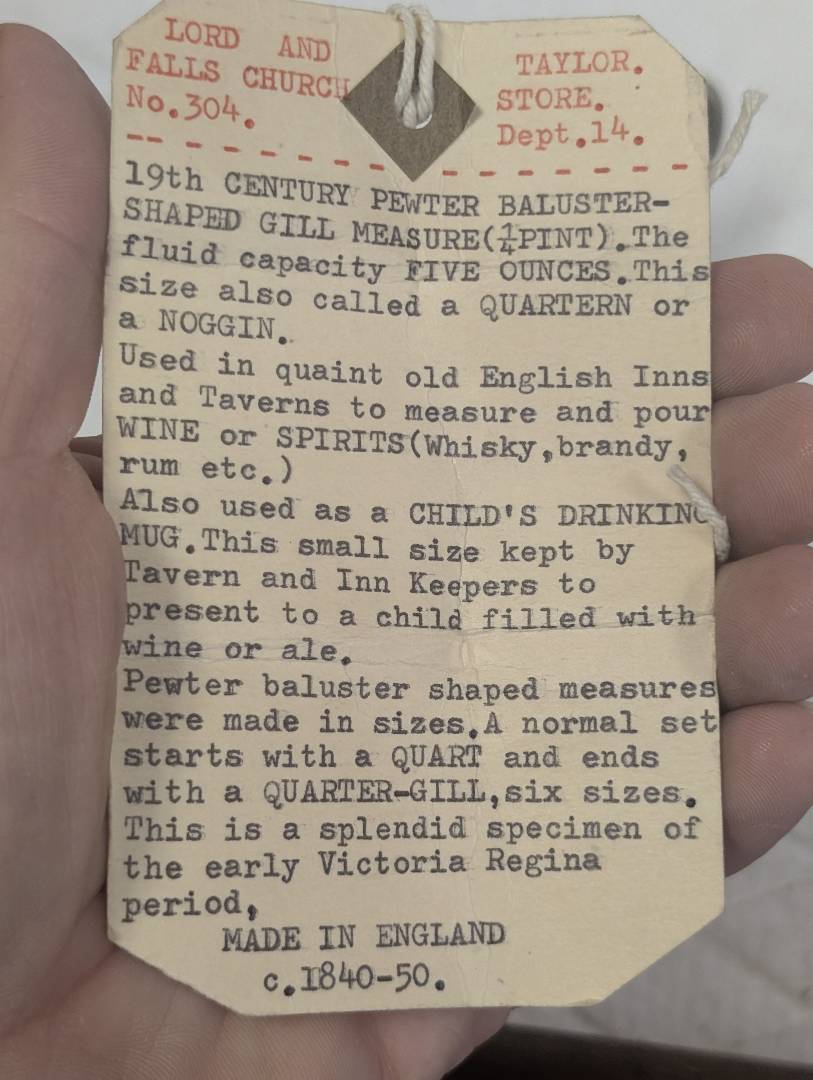 LORD AND TAYLOR.
FALLS CHURCH STORE.
No.304. Dept.14.
19th CENTURY PEWTER BALUSTER-
SHAPED GILL MEASURE(¼PINT).The
fluid capacity FIVE OUNCES.This
size also called a QUARTERN or
a NOGGIN.
Used in quaint old English Inns
and Taverns to measure and pour
WINE or SPIRITS(Whisky,brandy,
rum etc.)
Also used as a CHILD'S DRINKING
MUG.This small size kept by
Tavern and Inn Keepers to
present to a child filled with
wine or ale.
Pewter baluster shaped measures
were made in sizes.A normal set
starts with a QUART and ends
with a QUARTER-GILL,six sizes.
This is a splendid specimen of
the early Victoria Regina
period,
MADE IN ENGLAND
c.1840-50.